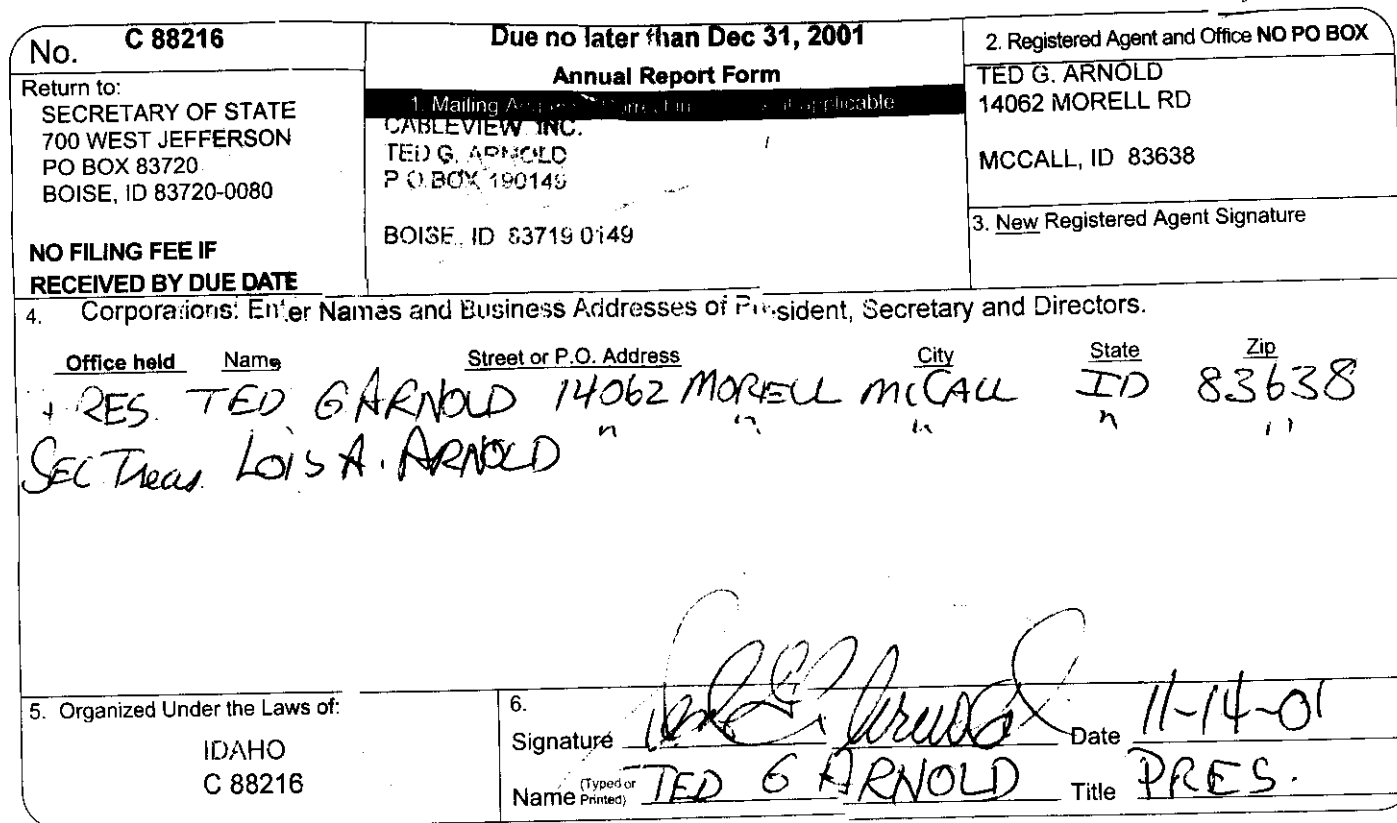 No. C 88216
Return to:
SECRETARY OF STATE
700 WEST JEFFERSON
PO BOX 83720
BOISE, ID 83720-0080
NO FILING FEE IF
RECEIVED BY DUE DATE
Due no later than Dec 31, 2001
Annual Report Form
1. Mailing if applicable
CABLEVIEW INC.
TED G. ARNOLD
P O BOX 190149
BOISE, ID 83719 0149
2. Registered Agent and Office NO PO BOX
TED G. ARNOLD
14062 MORELL RD
MCCALL, ID 83638
3. New Registered Agent Signature
4. Corporations: Enter Names and Business Addresses of President, Secretary and Directors.
Office held Name Street or P.O. Address City State Zip
PRES. TED G ARNOLD 14062 MORELL MCCALL ID 83638
SEC Treas. LOIS A. ARNOLD " " " " "
5. Organized Under the Laws of:
IDAHO
C 88216
6.
Signature Date 11-14-01
Name (Typed or Printed) TED G ARNOLD Title PRES.